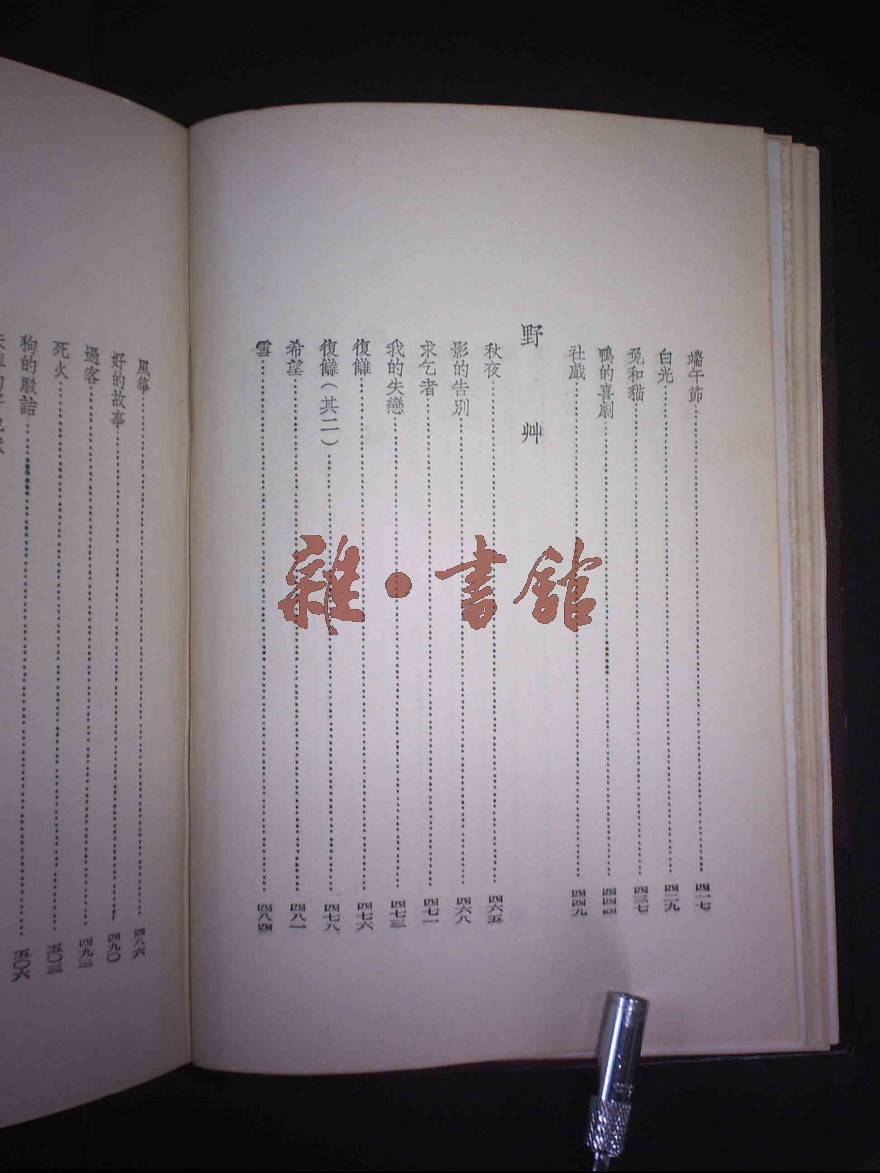 端午節 四一七
白光 四二九
兎和貓 四三七
鴨的喜劇 四四四
社戲 四四九
野艸
秋夜 四六五
影的告別 四六八
求乞者 四七一
我的失戀 四七三
復讎 四七六
復讎（其二） 四七八
希望 四八一
雪 四八四
風箏 四八六
好的故事 四九〇
過客 四九三
死火 五〇三
狗的駁詰 五〇六
雜·書館